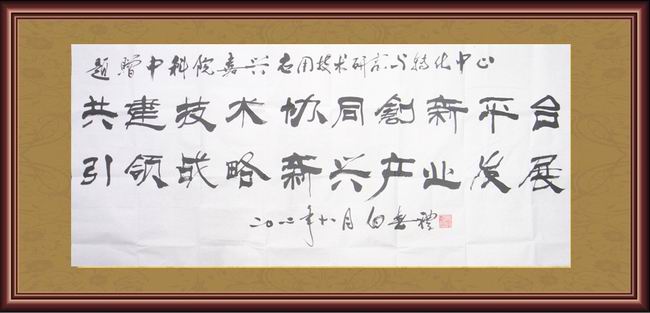 题赠中科院嘉兴应用技术研究与转化中心
共建技术协同創新平台
引领战略新兴产业发展
二〇一二年 月 白春禮